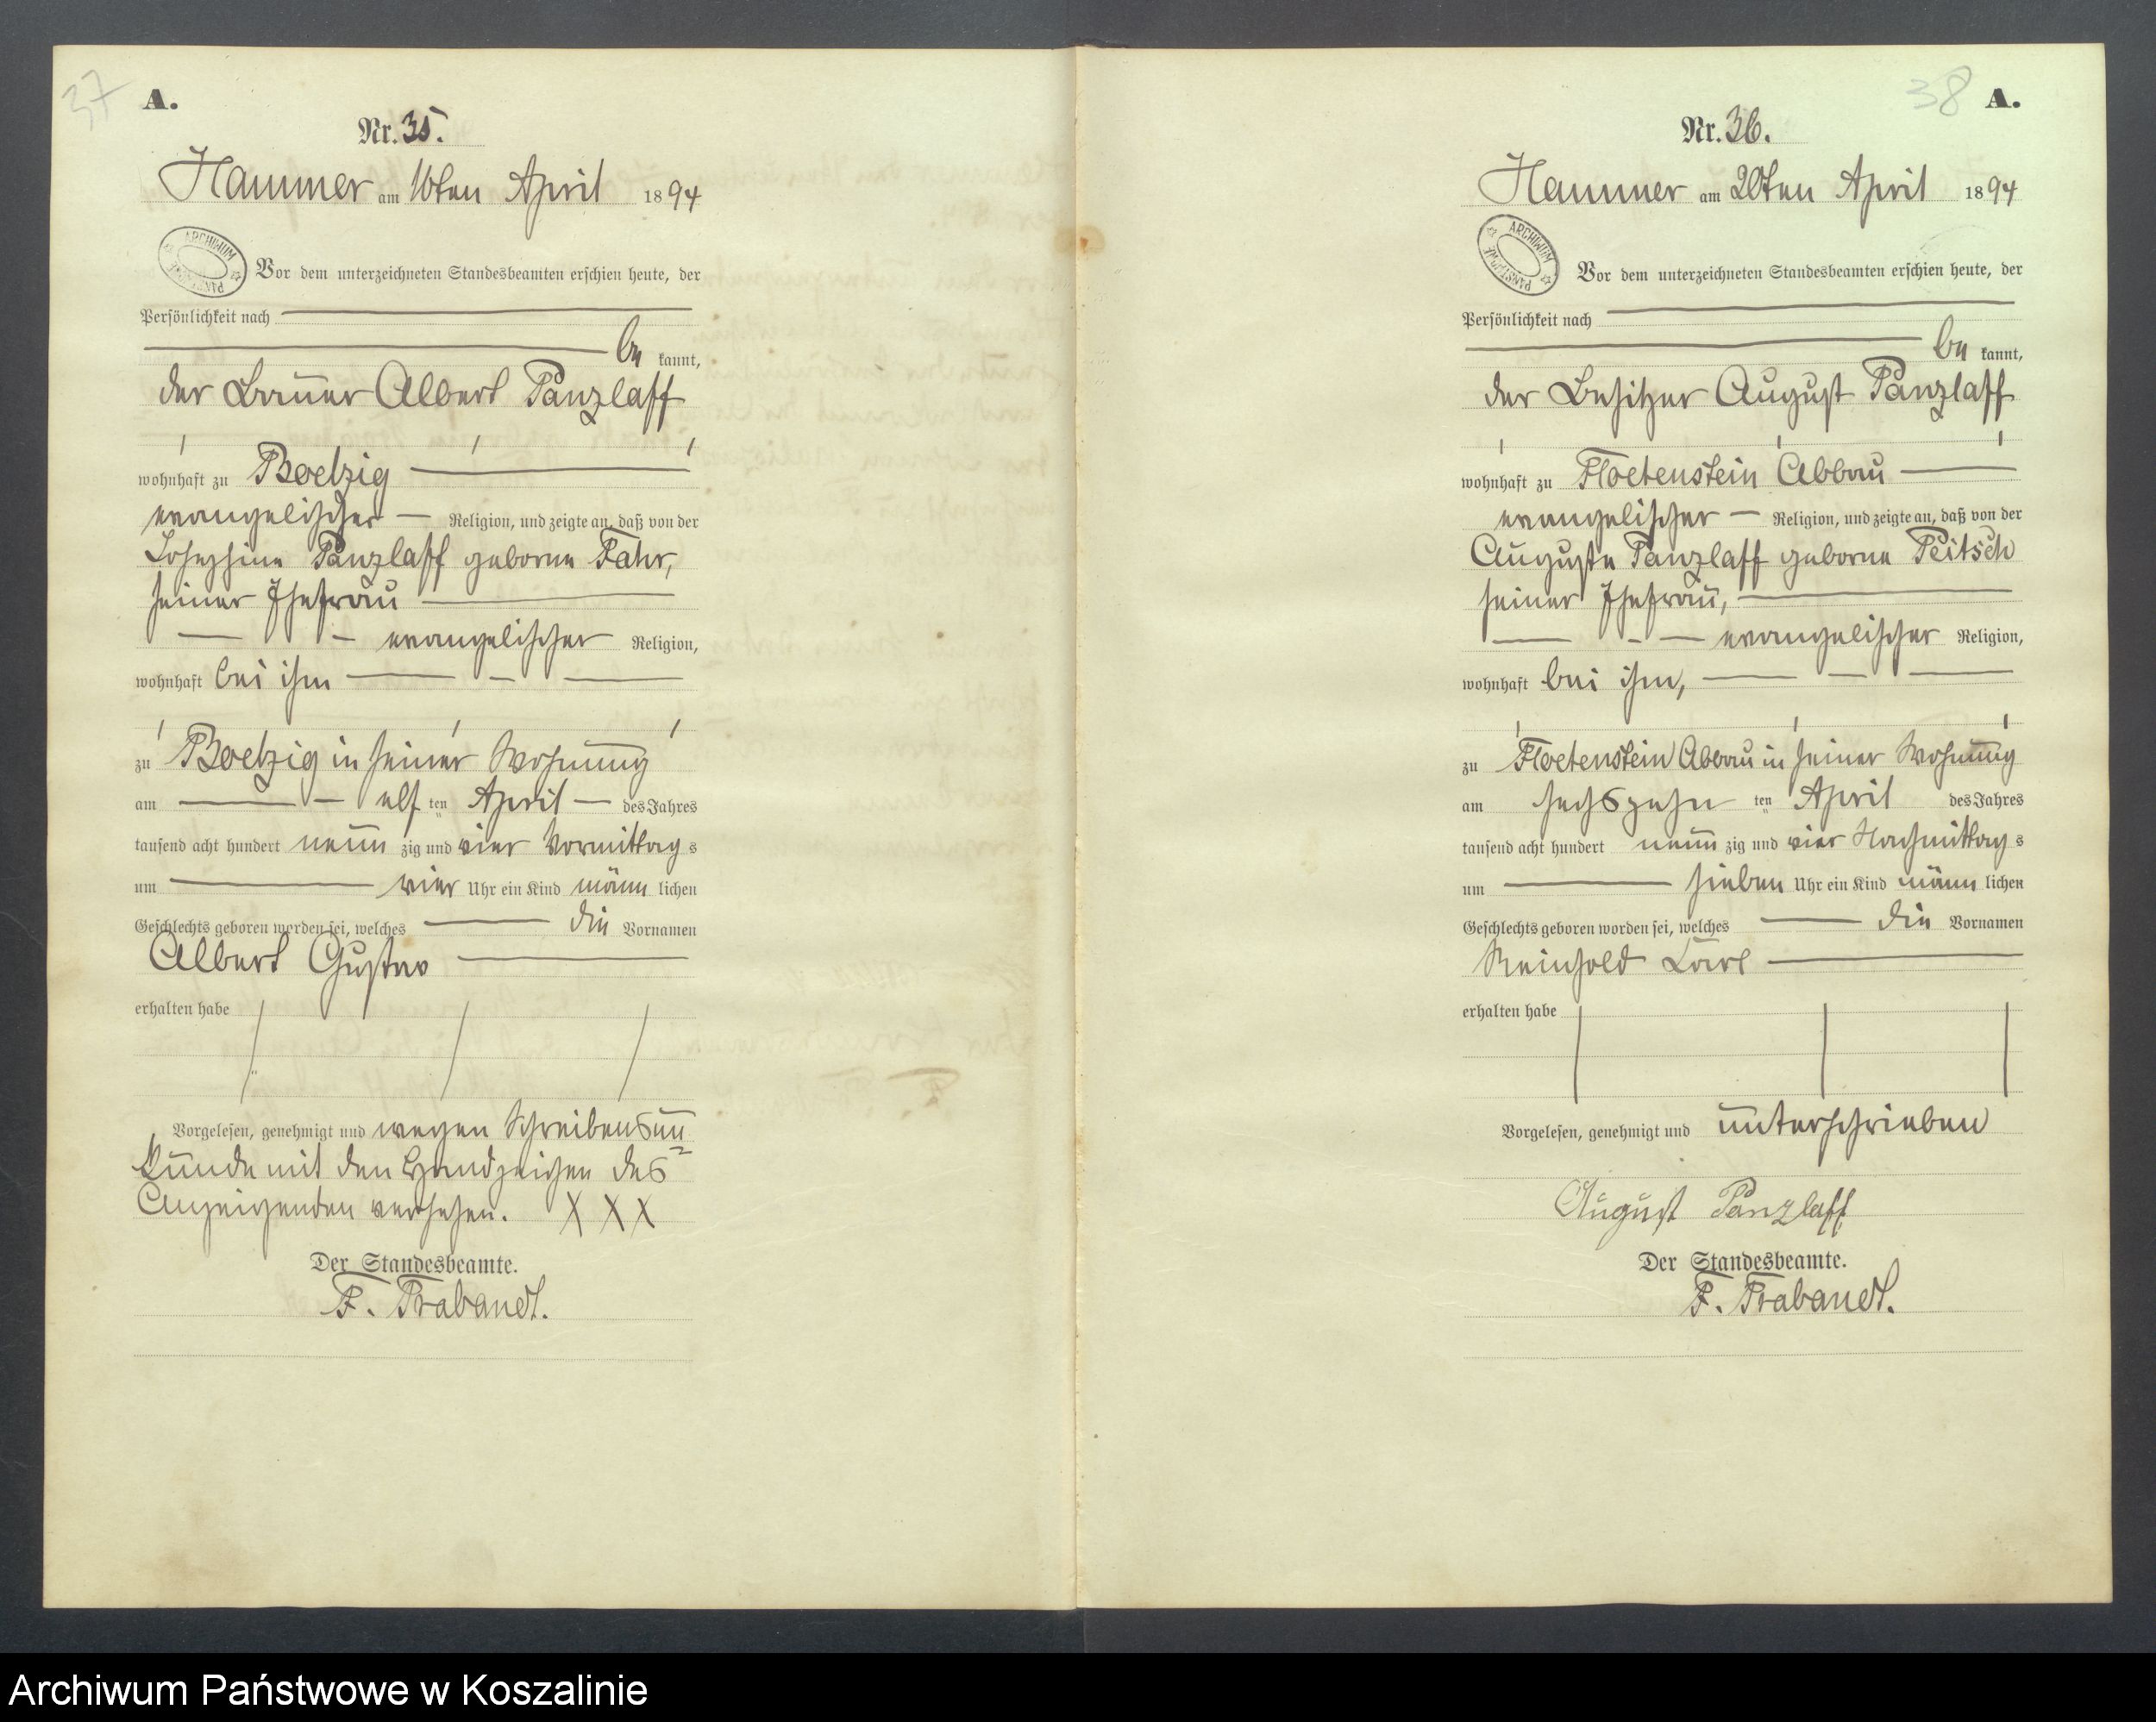 37
A.
Nr. 35.
Hammer am 16ten April 1894
ARCHIWUM
Vor dem unterzeichneten Standesbeamten erschien heute, der
Persönlichkeit nach
be kannt,
der Bauer Albert Panzlaff
wohnhaft zu Boelzig
evangelischer Religion, und zeigte an, daß von der
Josephine Panzlaff geborne Fahr,
seiner Ehefrau
evangelischer Religion,
wohnhaft bei ihm
zu Boelzig in seiner Wohnung
am elf ten April des Jahres
tausend acht hundert neun zig und vier Vormittag s
um vier Uhr ein Kind männ lichen
Geschlechts geboren worden sei, welches die Vornamen
Albert Gustav
erhalten habe
Vorgelesen, genehmigt und wegen Schreibensun
kunde mit den Handzeichen des
Anzeigenden versehen. X X X
Der Standesbeamte.
F. Trabandt.
38
A.
Nr. 36.
Hammer am 20ten April 1894
ARCHIWUM
Vor dem unterzeichneten Standesbeamten erschien heute, der
Persönlichkeit nach
be kannt,
der Besitzer August Panzlaff
wohnhaft zu Floetenstein Abbau
evangelischer Religion, und zeigte an, daß von der
Auguste Panzlaff geborne Peitsch
seiner Ehefrau,
evangelischer Religion,
wohnhaft bei ihm,
zu Floetenstein Abbau in seiner Wohnung
am sechszehn ten April des Jahres
tausend acht hundert neun zig und vier Nachmittag s
um sieben Uhr ein Kind männ lichen
Geschlechts geboren worden sei, welches die Vornamen
Reinhold Carl
erhalten habe
Vorgelesen, genehmigt und unterschrieben
August Panzlaff
Der Standesbeamte.
F. Trabandt.
Archiwum Państwowe w Koszalinie